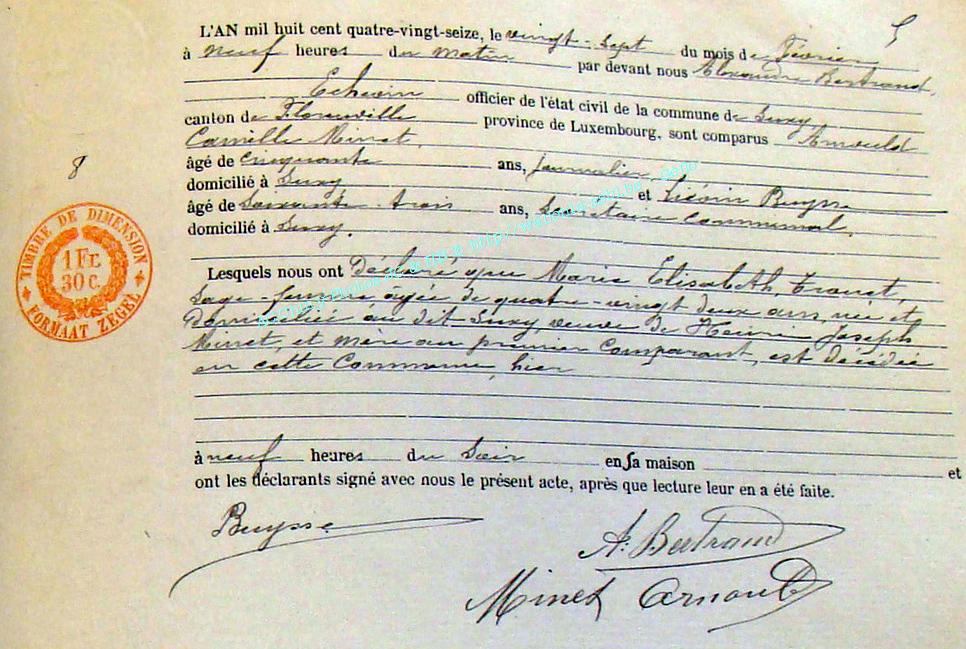 5
L'AN mil huit cent quatre-vingt-seize, le vingt-sept du mois de Février
à neuf heures du matin par devant nous Alexandre Bertrand,
Echevin officier de l'état civil de la commune de Suxy,
canton de Florenville province de Luxembourg, sont comparus Arnould
Camille Minet,
âgé de cinquante ans, journalier,
domicilié à Suxy et Liévin Buysse
âgé de soixante-trois ans, Secrétaire Communal,
domicilié à Suxy.
Lesquels nous ont déclaré que Marie Elisabeth,
Sage-femme, âgée de quatre-vingt deux ans, née et
domiciliée au dit Suxy, veuve de Henri Joseph
Minet, et mère au premier Comparant, est décédée
en cette Commune, hier
à neuf heures du Soir en sa maison et
ont les déclarants signé avec nous le présent acte, après que lecture leur en a été faite.
Buysse
A. Bertrand
Minet Arnould
8
TIMBRE DE DIMENSION
1 FR.
30 C.
FORMAAT ZEGEL